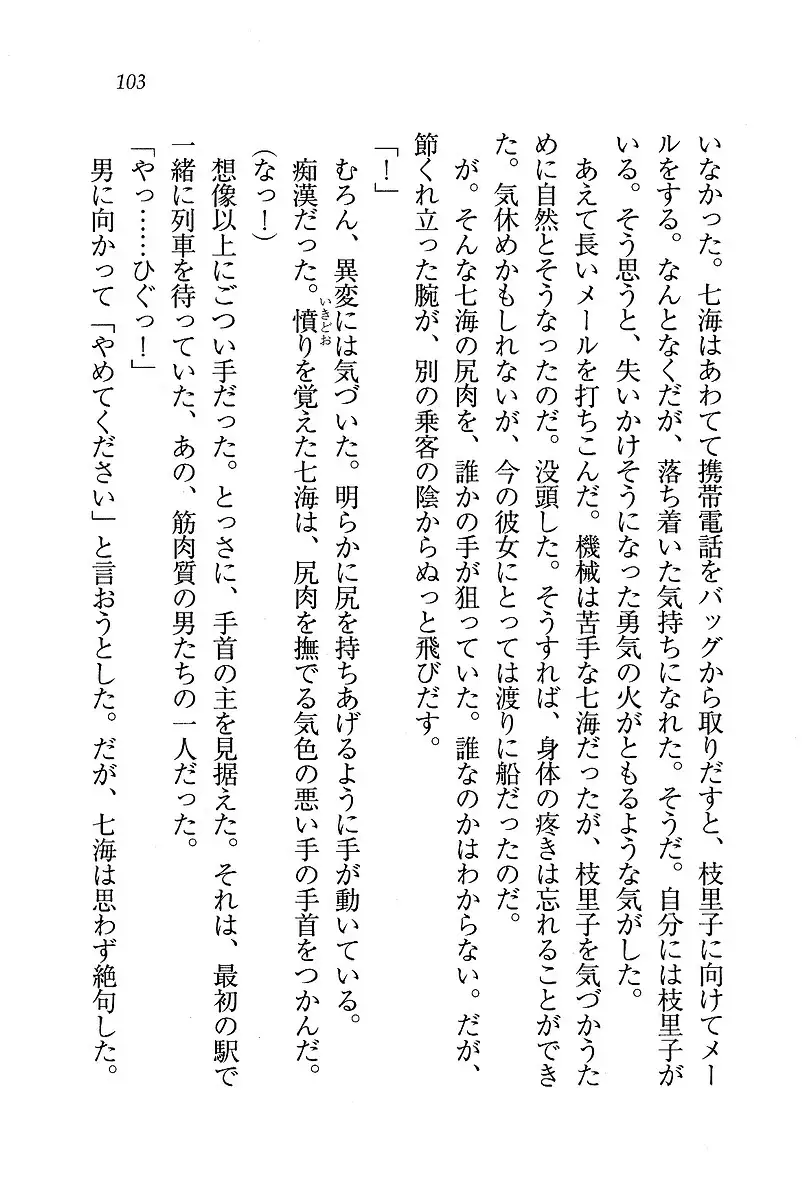 103
いなかった。七海はあわてて携帯電話をバッグから取りだすと、枝里子に向けてメー
ルをする。なんとなくだが、落ち着いた気持ちになれた。そうだ。自分には枝里子が
いる。そう思うと、失いかけそうになった勇気の火がともるような気がした。
あえて長いメールを打ちこんだ。機械は苦手な七海だったが、枝里子を気づかうた
めに自然とそうなったのだ。没頭した。そうすれば、身体の疼きは忘れることができ
た。気休めかもしれないが、今の彼女にとっては渡りに船だったのだ。
が。そんな七海の尻肉を、誰かの手が狙っていた。誰なのかはわからない。だが、
節くれ立った腕が、別の乗客の陰からぬっと飛びだす。
「！」
むろん、異変には気づいた。明らかに尻を持ちあげるように手が動いている。
痴漢だった。憤りを覚えた七海は、尻肉を撫でる気色の悪い手の手首をつかんだ。
いきどお
（なっ！）
想像以上にごつい手だった。とっさに、手首の主を見据えた。それは、最初の駅で
一緒に列車を待っていた、あの、筋肉質の男たちの一人だった。
「やっ……ひぐっ！」
男に向かって「やめてください」と言おうとした。だが、七海は思わず絶句した。